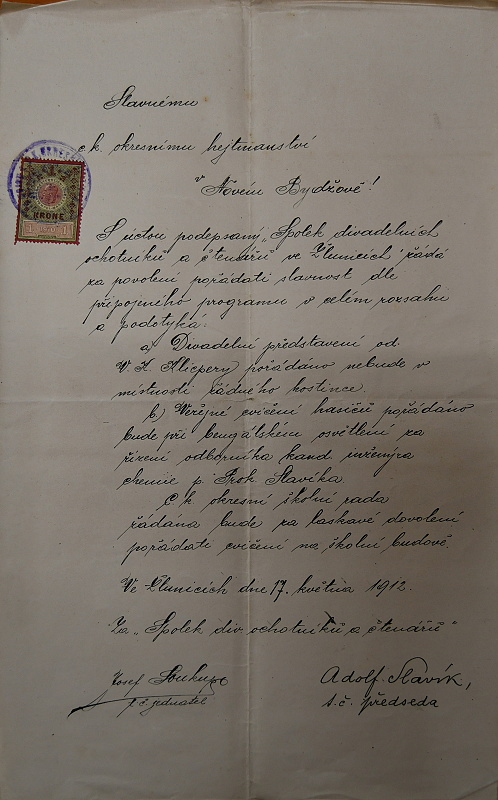 Slavnému
c.k. okresnímu hejtmanství
v Novém Bydžově!
1 KRONE 1
S úctou podepsaný „Spolek divadelních
ochotníků a čtenářů ve Žlunicích" žádá
za povolení pořádati slavnost dle
připojeného programu v celém rozsahu
a podotýká:
a) Divadelní představení od
V. K. Klicpery pořádáno nebude v
místnosti řádného hostince.
b.) Veřejné cvičení hasičů pořádáno
bude při bengálském osvětlení za
řízení odborníka kand. inženýra
chemie p. Prok. Slavíka.
C. k. okresní školní rada
žádána bude za laskavé dovolení
pořádati cvičení na školní budově.
Ve Žlunicích dne 17. května 1912.
Za „Spolek div. ochotníků a čtenářů"
Josef Soukup
t. č. jednatel
Adolf Slavík,
t. č. předseda